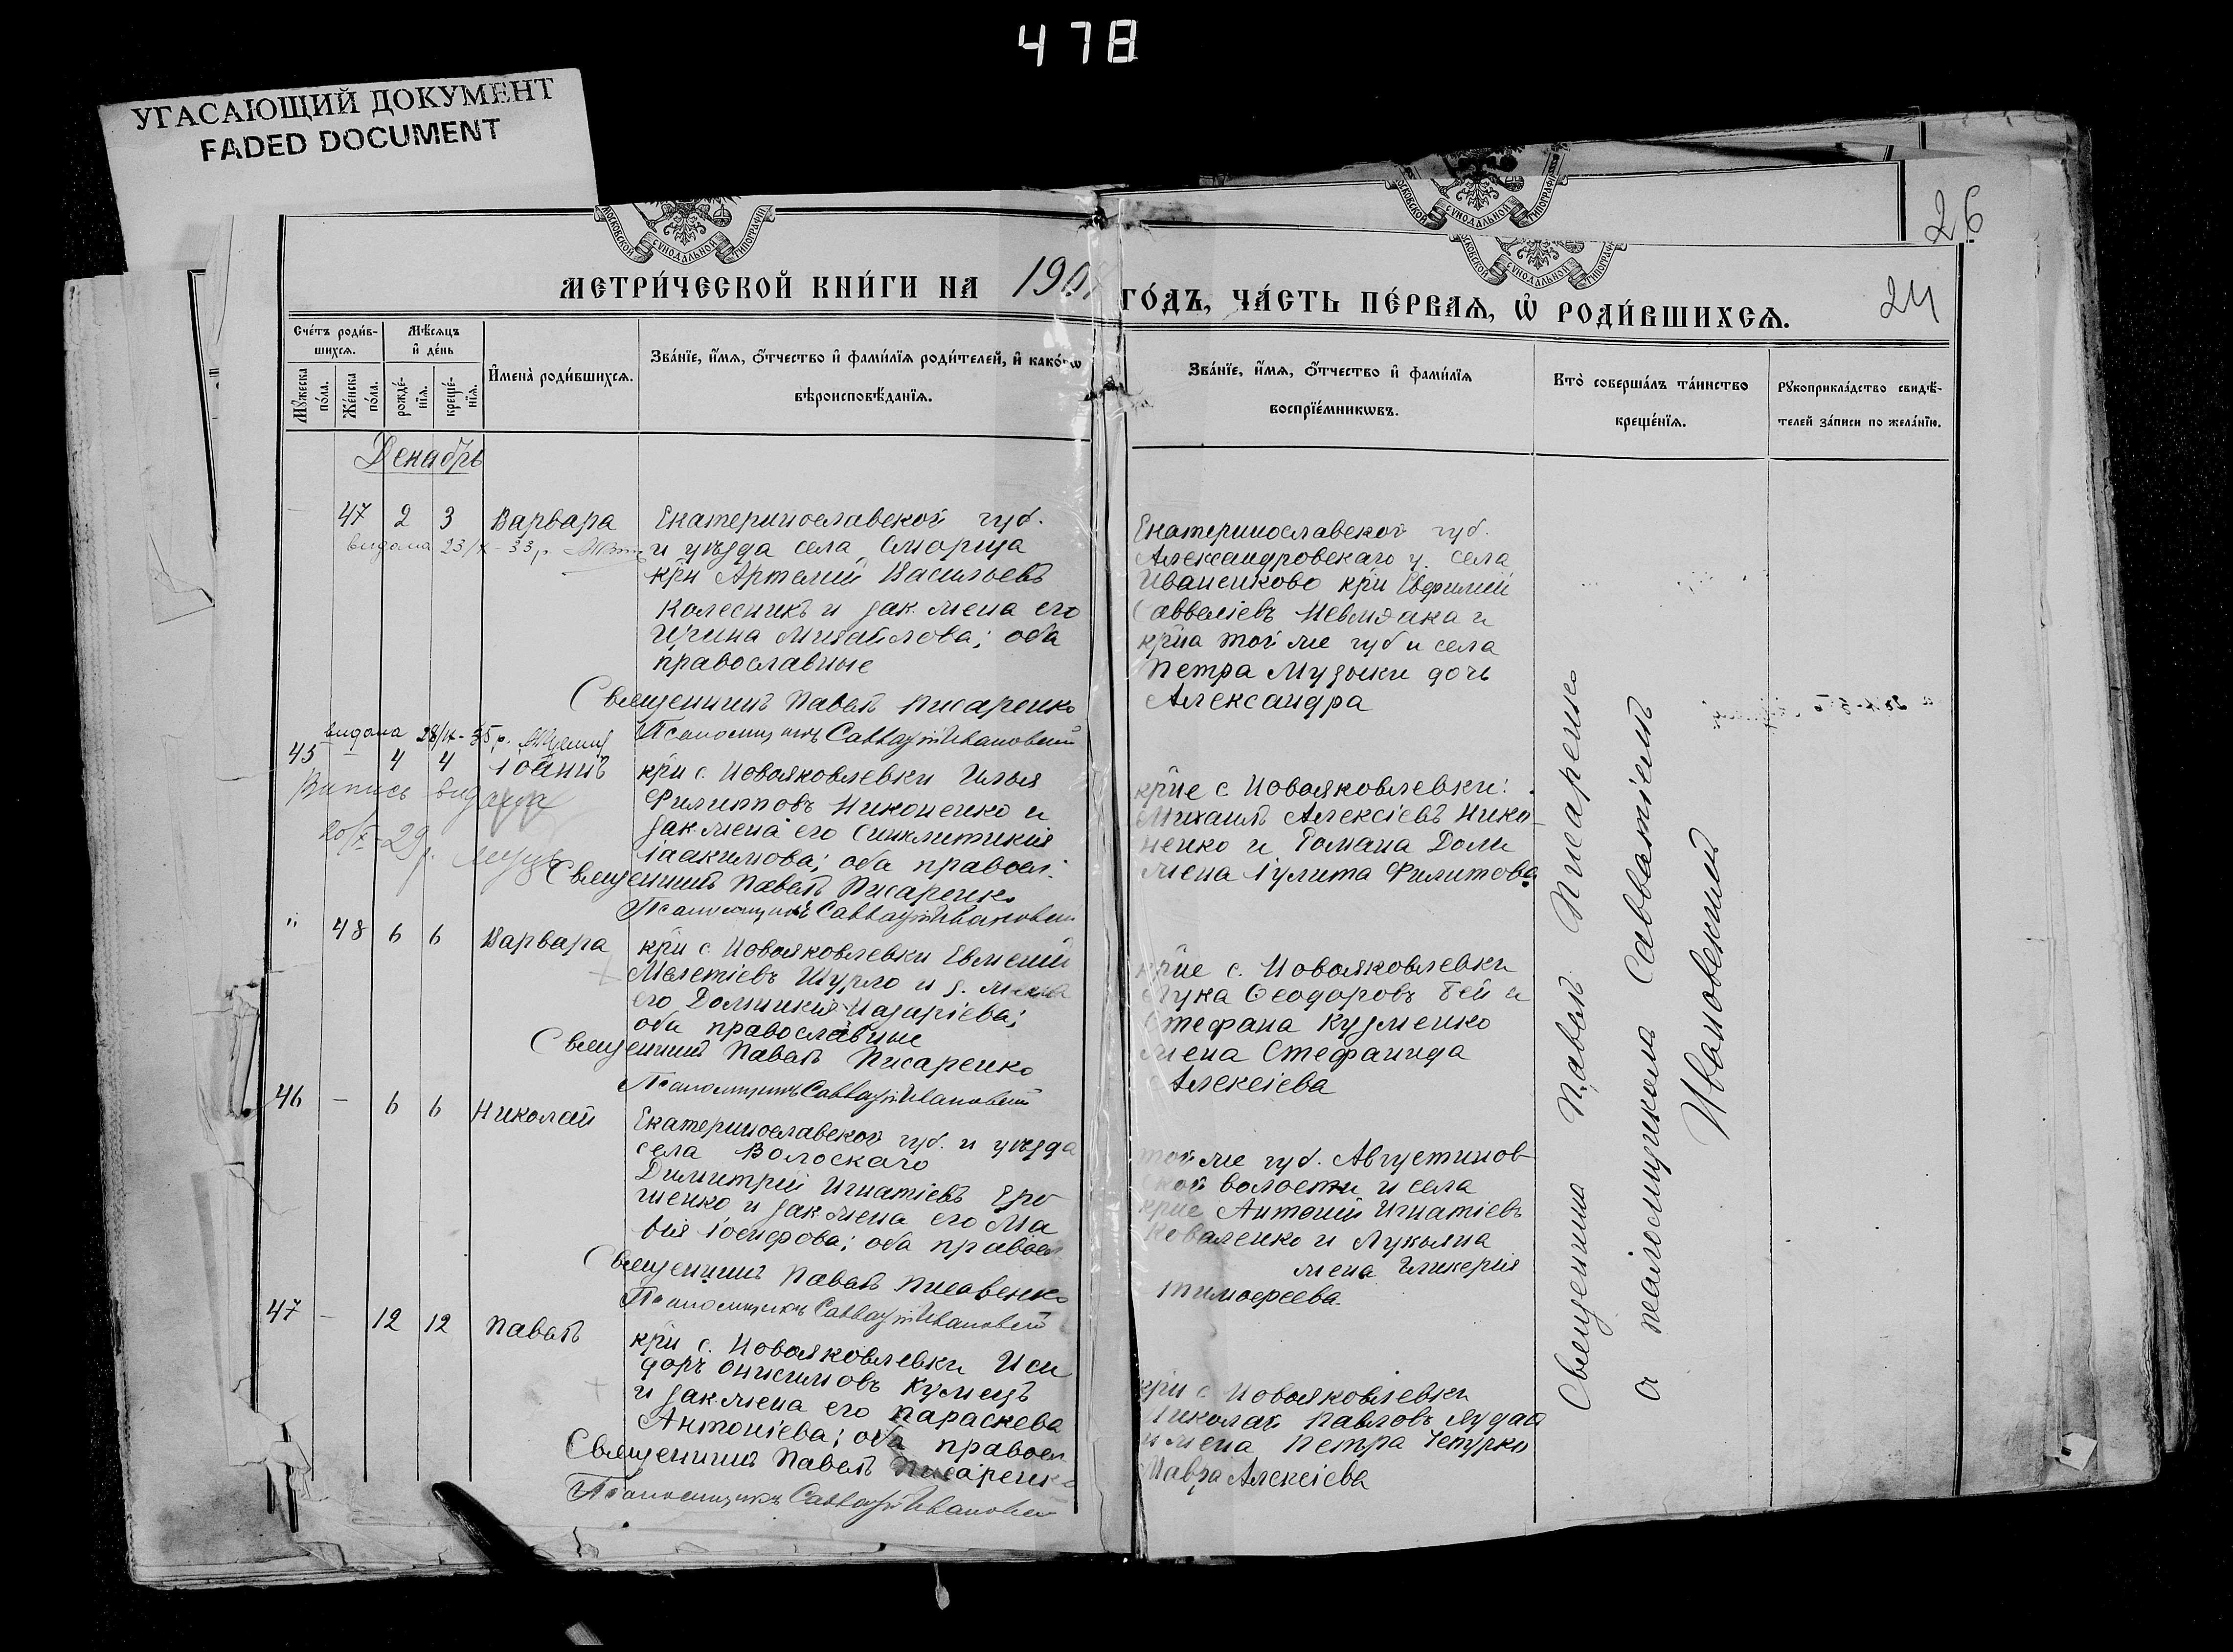 478
УГАСАЮЩИЙ ДОКУМЕНТ
FADED DOCUMENT
МОСКОВСКОЙ СѴНОДАЛЬНОЙ ТИПОГРАФІИ
26
МЕТРИ́ЧЕСКОЙ КНИ́ГИ НА 190
ГО́ДЪ, ЧА́СТЬ ПЕ́РВАѦ, Ѡ҆ РОДИ́ВШИХСѦ.
24
Сче́тъ роди́в-
шихсѧ.
Мꙋ́жеска по́ла.
Же́нска по́ла.
Мѣ́сѧцъ и҆ де́нь
рожде́-нїѧ.
креще́-нїѧ.
И҆мена̀ роди́вшихсѧ.
Зва́нїе, и҆́мѧ, ѻ҆́тчество и҆ фами́лїѧ роди́телей, и҆ како́гѡ
вѣроисповѣ́данїѧ.
Зва́нїе, и҆́мѧ, ѻ҆́тчество и҆ фами́лїѧ
воспрїе́мникѡвъ.
Кто̀ соверша́лъ та́инство
креще́нїѧ.
Рꙋкоприкла́дство свидѣ́-
телей за́писи по жела́нїю.
Декабрь
47 2 3 Варвара
видана 23/ - 33 р.
Екатеринославской губ.
и уѣзда села
крн Артемий Васильевъ
Колесникъ и зак. жена его
Ирина Михайлова; оба
православные
Священникъ Павелъ Писаренко
Псаломщикъ Савватій Ивановскій
Екатеринославской губ.
Александровскаго у. села
Иваненково крн Евфимий
Савваміевъ и
крна той же губ и села
Петра Музыки дочь
Александра
видана 28/ - 35 р.
45 – 4 4 Іоаннъ
Випись видана
20/ - 29 р.
крн с. Новояковлевки Илья
Филипповъ Никоненко и
зак. жена его Синклитикия
Іоакимова; оба правосл.
Священникъ Павелъ Писаренко
Псаломщикъ Савватій Ивановскій
крне с Новояковлевки:
Михаилъ Алексіевъ Нико-
ненко и Романа Доли
жена Іулита Филипова
" 48 6 6 Варвара
крн с. Новояковлевки Евгений
Мелетіевъ Шурло и з. жена
его Домникия Назаріева;
оба православные
Священникъ Павелъ Писаренко
Псаломщикъ Савватій Ивановскій
крне с. Новояковлевки
Лука Ѳеодоровъ Бей и
Стефана Кузменко
жена Стефанида
Алексіева
46 – 6 6 Николай
Екатеринославской губ. и уѣзда
села Волоскаго
Димитрій Игнатіевъ Еро
шенко и зак жена его Ма
вия Іосифова; оба правосл
Священникъ Павелъ Писаренко
Псаломщикъ Савватій Ивановскій
той же губ. Августинов
ской волости и села
крне Антоний Игнатіевъ
Коваленко и Лукьяна
жена Гликерия
Тимофеева.
47 – 12 12 Павелъ
крн с. Новояковлевки Иси
доръ Онисимовъ Кулишъ
и зак жена его Параскева
Антоніева; оба правосл
Священникъ Павелъ Писаренко
Псаломщикъ Савватій Ивановскій
крн с Новояковлевки
Николай Павловъ
и жена Петра Чепурко
Мавра Алексіева
Священникъ Павелъ Писаренко
съ псаломщикомъ Савватіемъ
Ивановскимъ